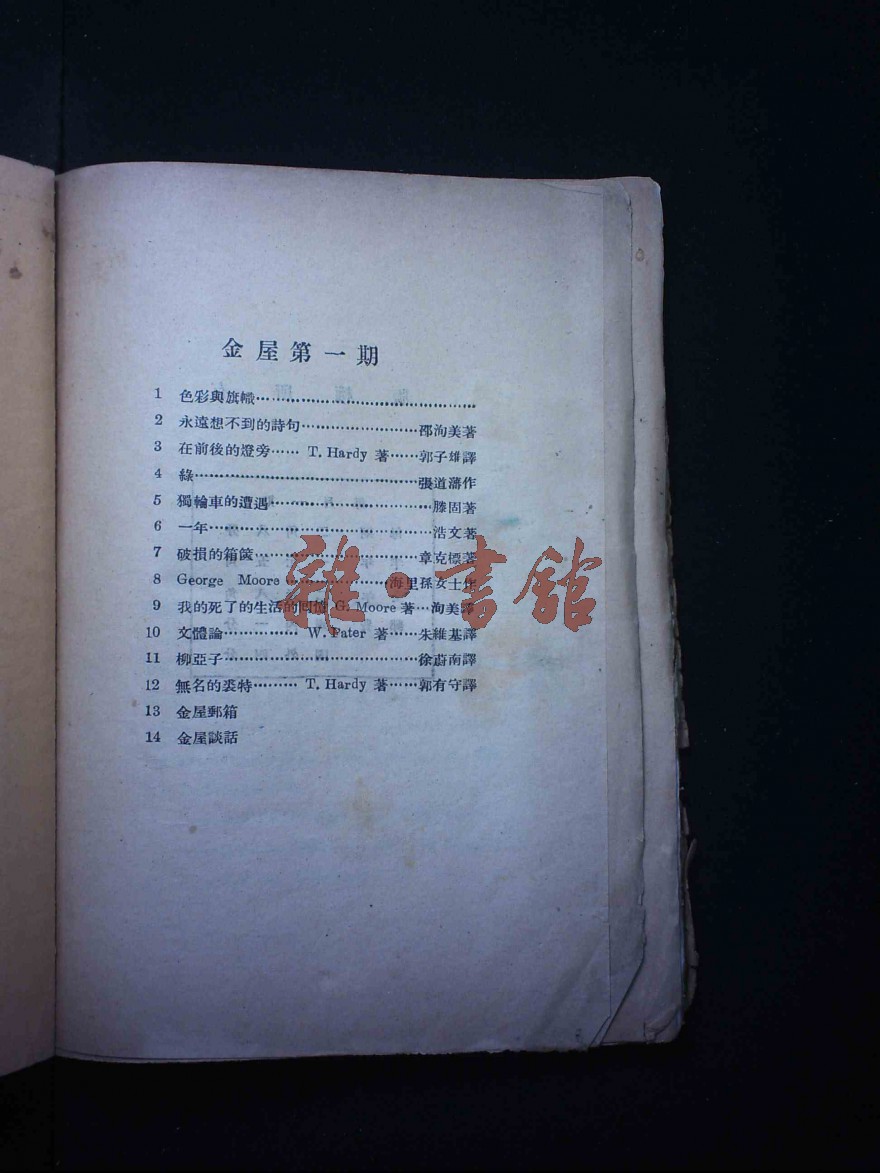 金屋第一期
1 色彩與旗幟………………………………
2 永遠想不到的詩句………………邵洵美著
3 在前後的燈旁…… T. Hardy 著……郭子雄譯
4 綠………………………………張道藩作
5 獨輪車的遭遇………………………滕固著
6 一年………………………………浩文著
7 破損的箱篋………………………章克標著
8 George Moore………………海里孫女士作
9 我的死了的生活的回憶 G. Moore 著…洵美譯
10 文體論…………… W. Pater 著……朱維基譯
11 柳亞子………………………………徐蔚南譯
12 無名的裘特……… T. Hardy 著……郭有守譯
13 金屋郵箱
14 金屋談話
雜·書館